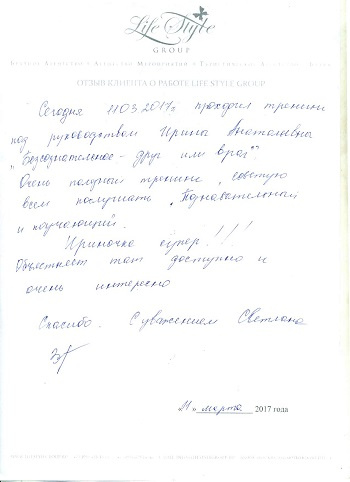 Life Style
GROUP
ОТЗЫВ КЛИЕНТА О РАБОТЕ LIFE STYLE GROUP
Сегодня 11.03.2017г. проходил тренинг
под руководством Ирины Анатолевны
„Безсознательное - друг или враг"
Очень полезный тренинг, советую
всем послушать. Познавательный
и поучающий.
Ириночка супер!!!
Объясняет так доступно и
очень интересно
Спасибо. С уважением Светлана
„11" марта 2017 года